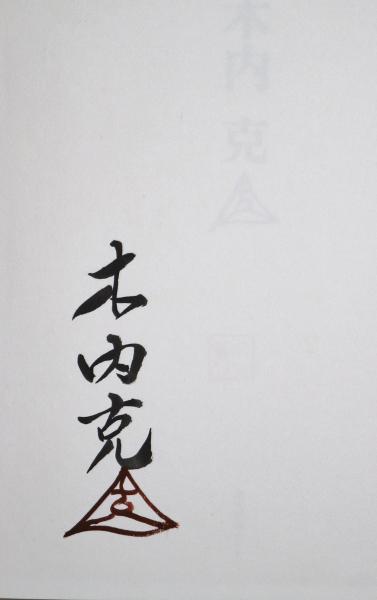 木内克
木内克